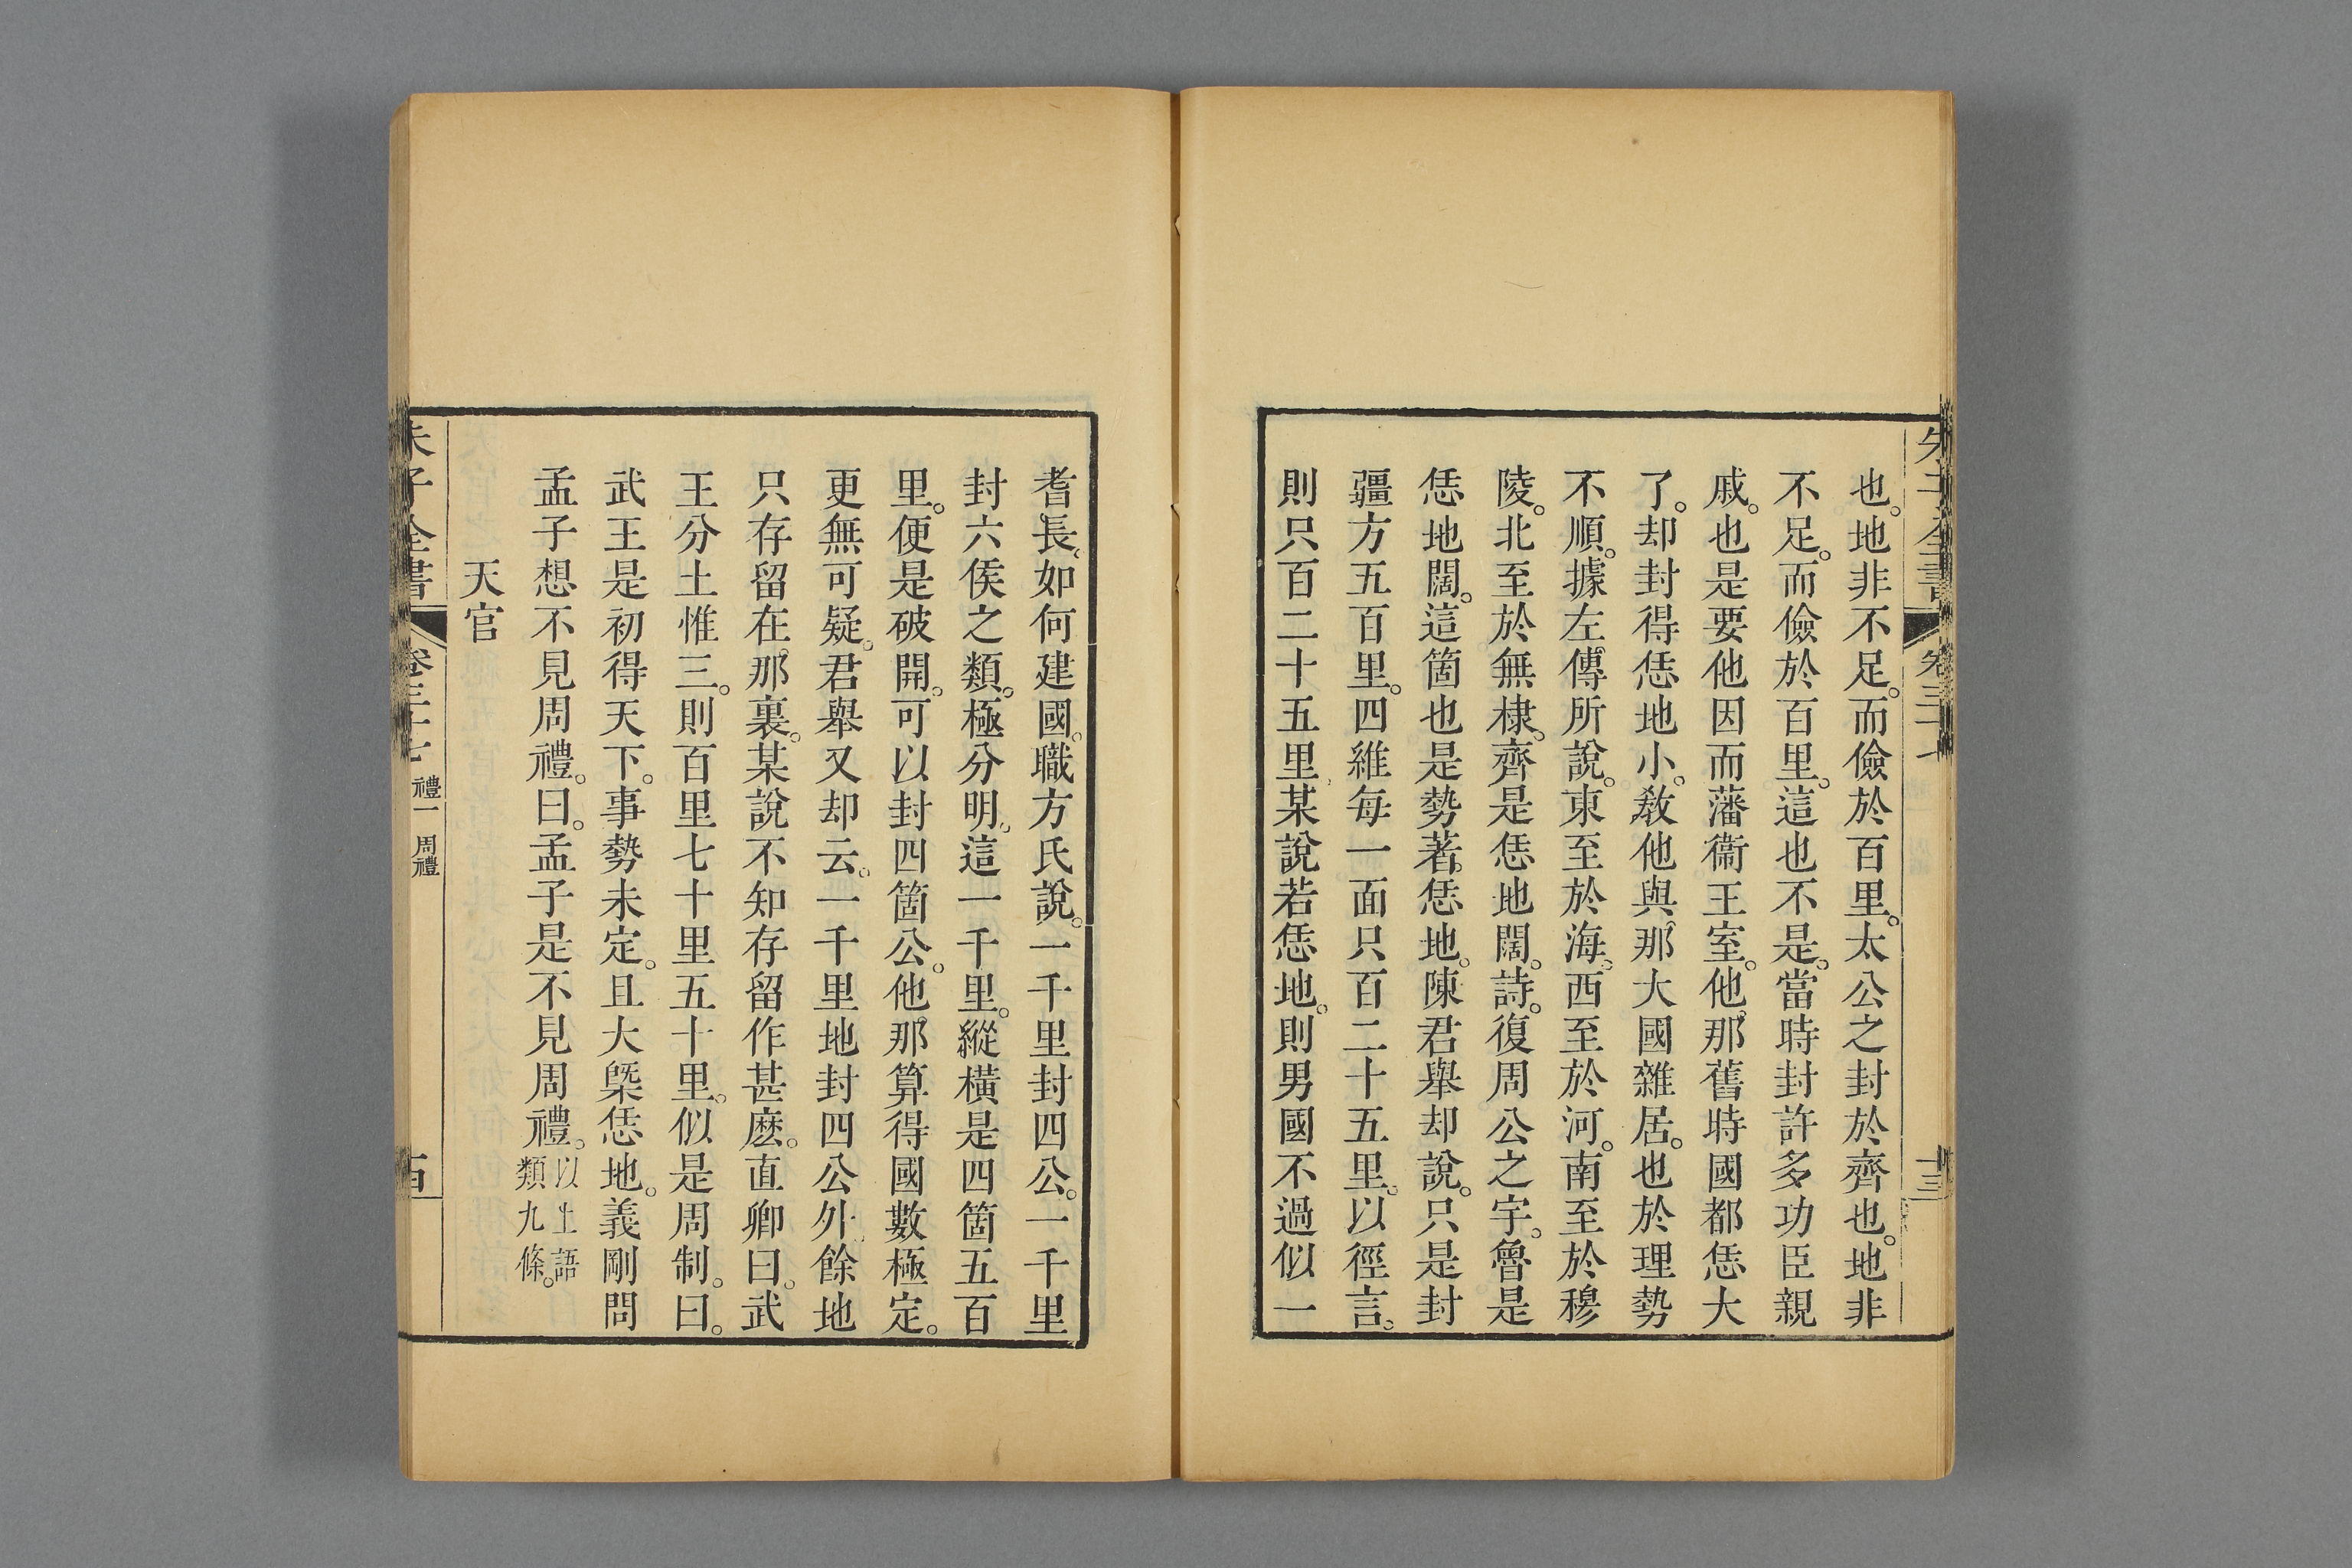 也。地非不足。而儉於百里。太公之封於齊也。地非
不足。而儉於百里。這也不是。當時封許多功臣親
戚。也是要他因而藩衞王室。他那舊時國都恁大
了。却封得恁地小。敎他與那大國雜居。也於理勢
不順。據左傳所說。東至於海。西至於河。南至於穆
陵。北至於無棣。齊是恁地闊。詩。復周公之宇。魯是
恁地闊。這箇也是勢著恁地。陳君舉却說。只是封
疆方五百里。四維每一面只百二十五里。以徑言。
則只百二十五里。某說若恁地。則男國不過似一
耆長。如何建國。職方氏說。一千里封四公。一千里
封六侯之類。極分明。這一千里。縱橫是四箇五百
里。便是破開。可以封四箇公。他那算得國數極定。
更無可疑。君舉又却云。一千里地封四公外。餘地
只存留在那裏。某說不知存留作甚麽。直卿曰。武
王分土惟三。則百里七十里五十里。似是周制。曰。
武王是初得天下。事勢未定。且大槩恁地。義剛問
孟子想不見周禮。曰。孟子是不見周禮。以上語
類九條。
天官
朱子全書 卷三十七 禮一 周禮